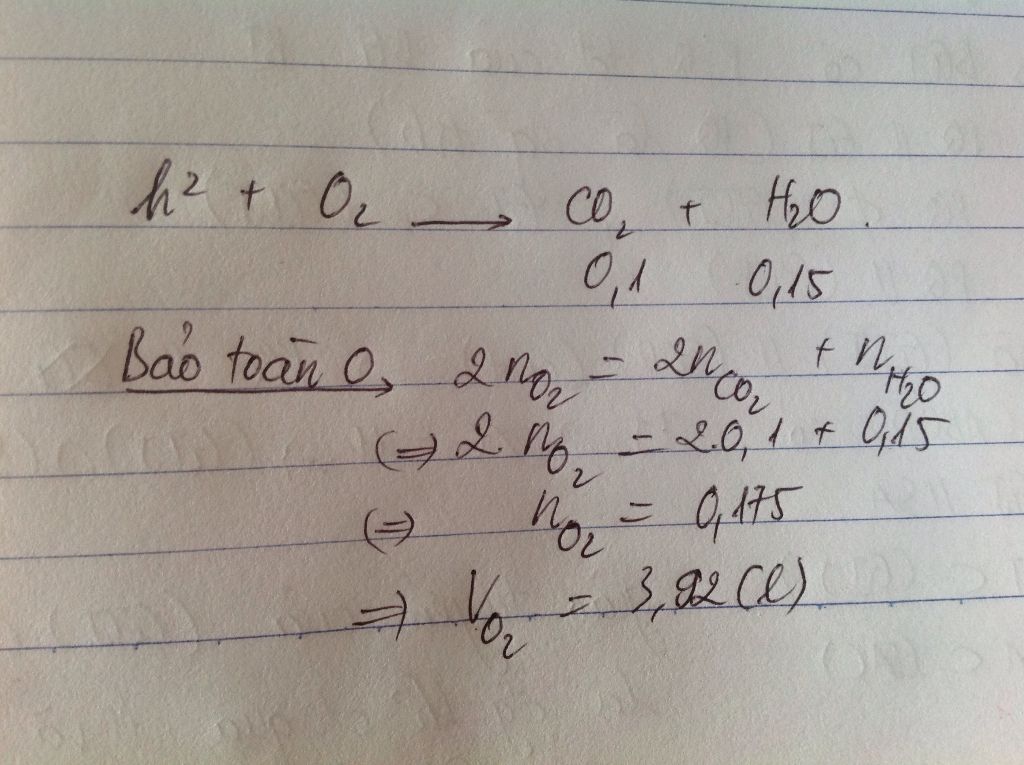 h² + O₂ ⟶ CO₂ + H₂O.
0,1 0,15
Bảo toàn O, 2n_O₂ = 2n_CO₂ + n_H₂O
(=) 2. n_O₂ = 2.0,1 + 0,15
(=) n_O₂ = 0,175
=) V_O₂ = 3,92 (l)